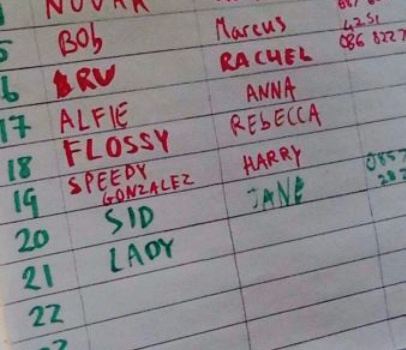 5 Bob Marcus 4251
6 BRU RACHEL 086 8227
17 ALFIE ANNA
18 FLOSSY REBECCA
19 SPEEDY GONZALEZ HARRY
20 SID JANE
21 LADY
22